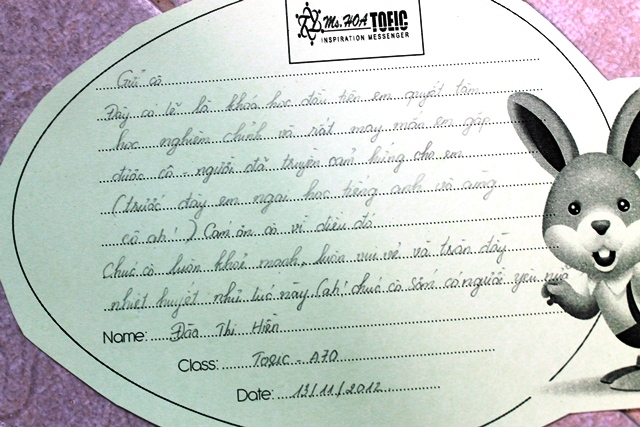 Ms. HOA TOEIC
INSPIRATION MESSENGER
Gửi cô
Đây có lẽ là khoá học đầu tiên em quyết tâm
học nghiêm chỉnh và rất may mắn em gặp
được cô - người đã truyền cảm hứng cho em
(trước đây em ngại học tiếng anh vô cùng
cô ah! ) Cám ơn cô vì điều đó
Chúc cô luôn khoẻ mạnh, luôn vui vẻ và tràn đầy
nhiệt huyết như lúc này (ah! chúc cô sớm có người yêu nữa
Name: Đào Thị Hiền
Class: TOEIC - A70
Date: 13/11/2012